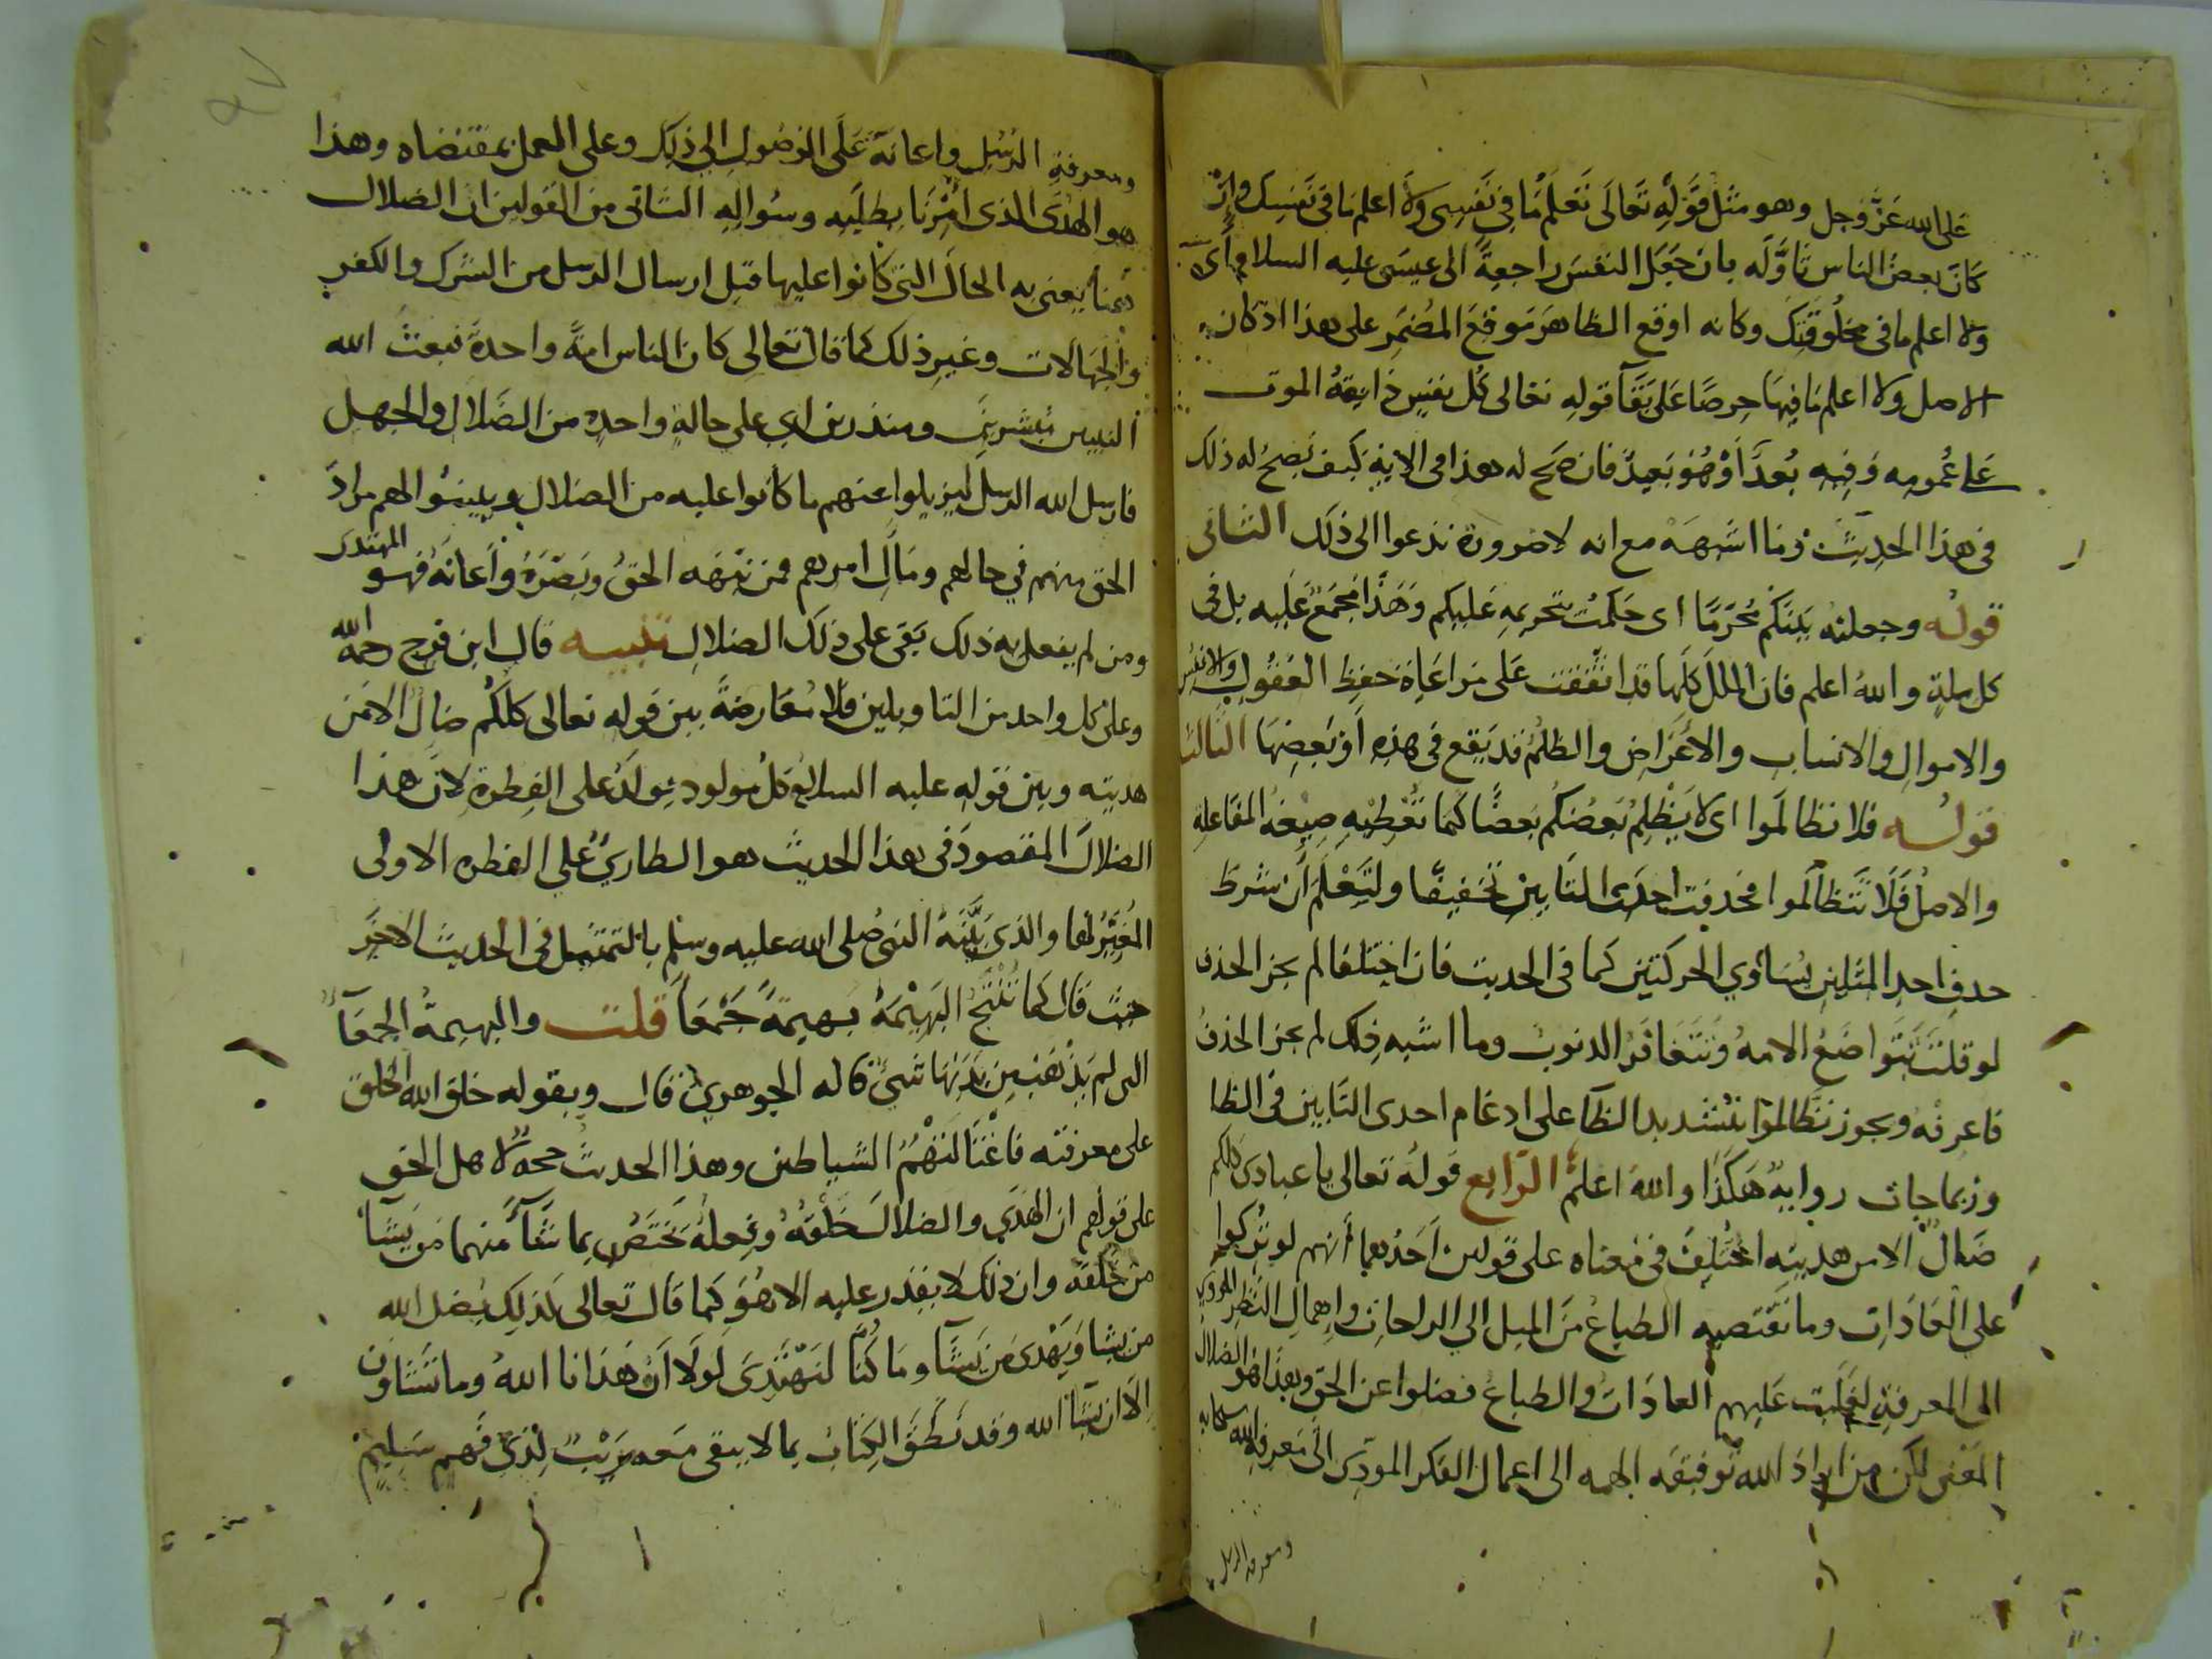 على الله عز وجل وهو مثل قوله تعالى تعلم ما في نفسي ولا اعلم ما في نفسك وان
كان بعض الناس تاوله بان جعل النفس راجعة الى عيسى عليه السلام اى
ولا اعلم ما في مخلوقتك وكانه اوقع الظاهر موقع المضمر على هذا اذ كان
الاصل ولا اعلم ما فيها حرصا على بقآ قوله تعالى كل نفس ذايقة الموت
على عمومه وفيه بعد او هو بعيد فان صح له هذا في الاية كيف يصح له ذلك
في هذا الحديث وما اشبهه مع انه لا ضرورة تدعوا الى ذلك الثاني
قوله وجعلته بينكم محرما اى حكمت بتحريمه عليكم وهذا مجمع عليه بل في
كل ملة والله اعلم فان الملل كلها قد اتفقت على مراعاة حفظ العقول والانفس
والاموال والانساب والاعراض والظلم قد يقع في هذه او بعضها الثالث
قوله فلا تظالموا اى لا يظلم بعضكم بعضا كما تعطيه صيغة المفاعلة
والاصل فلا تتظالموا فحذفت احدى التايين تخفيفا ولتعلم ان شرط
حذف احد المثلين تساوي الحركتين كما في الحديث فان اختلفا لم يجز الحذف
لو قلت تتواضع الامة وتتغافر الذنوب وما اشبه ذلك لم يجز الحذف
فاعرفه ويجوز تظالموا بتشديد الظآ على ادغام احدى التايين في الظا
وربما جات رواية هكذا والله اعلم الرابع قوله تعالى يا عبادي كلكم
ضال الا من هديته اختلف في معناه على قولين احدهما انهم لو تركوا
على العادات وما تقتضيه الطباع من الميل الى الراحات واهمال النظر المودي
الى المعرفة لغلبت عليهم العادات والطباع فضلوا عن الحق وهذا هو الضلال
المعنى لكن من اراد الله توفيقه الهمه الى اعمال الفكر المودى الى معرفة الله سبحانه
ومعرفة الرسل
ومعرفة الرسل واعانة على الوصول الى ذلك وعلى العمل بمقتضاه وهذا
هو الهدى الذى امرنا بطلبه وسواله الثاني من القولين ان الضلال
هنا يعنى به الحال التى كانوا عليها قبل ارسال الرسل من الشرك والكفر
والجهالات وغير ذلك كما قال تعالى كان الناس امة واحدة فبعث الله
النبيين مبشرين ومنذرين اي على حالة واحدة من الضلال والجهل
فارسل الله الرسل ليزيلوا عنهم ما كانوا عليه من الضلال ويبينوا لهم مراد
الحق منهم في حالهم ومآل امرهم فمن نبهه الحق وبصره واعانه فهو المهتدى
ومن لم يفعل به ذلك بقى على ذلك الضلال تنبيه قال ابن فرح رحمه الله
وعلى كل واحد من التاويلين فلا معارضة بين قوله تعالى كلكم ضال الا من
هديته وبين قوله عليه السلام كل مولود يولد على الفطرة لان هذا
الضلال المقصود في هذا الحديث هو الطاري على الفطره الاولى
المغير لها والذى بينه النبى صلى الله عليه وسلم بالتمثيل في الحديث الاخر
حيث قال كما تنتج البهيمة بهيمة جمعا قلت والبهيمة الجمعآ
التى لم يذهب من بدنها شيئ قاله الجوهري قال وبقوله خلق الله الخلق
على معرفته فاغتالتهم الشياطين وهذا الحديث حجة لاهل الحق
على قولهم ان الهدي والضلال خلقه وفعله يختص بما شآ منهما من يشآ
من خلقه وان ذلك لا يقدر عليه الا هو كما قال تعالى كذلك يضل الله
من يشا ويهدى من يشآ وما كنا لنهتدى لولا ان هدانا الله وما تشاون
الا ان يشآ الله وقد نطق الكتاب بما لا يبقى معه ريب لذى فهم سليم